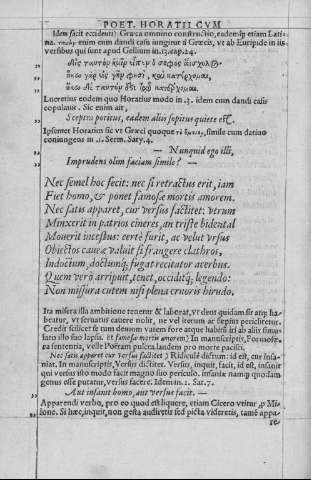 POET. HORATII CVM
Idem facit occidenti) Græca omnino constructio, eademq́; etiam Lati-
na. enim cum dandi casu iungitur à Græcis, vt ab Euripide in iis
versibus qui sunt apud Gellium in .13. cap. 24.
Lucretius eodem quo Horatius modo in .3. idem cum dandi casu
copulauit. Sic enim ait,
Sceptra potitus, eadem aliis sopitus quiete est.
Ipsemet Horatius sic vt Græci quoque simile cum datiuo
coniungens in .1. Serm. Saty. 4.
— Nunquid ego illi,
Imprudens olim faciam simile? —
Nec semel hoc fecit: nec si retractus erit, iam
Fiet homo, & ponet famosæ mortis amorem.
Nec satis apparet, cur versus factitet: vtrum
Minxerit in patrios cineres, an triste bidental
Mouerit incestus: certè furit, ac velut vrsus
Obiectos caueæ valuit si frangere clathros,
Indoctum, doctumq́; fugat recitator acerbus.
Quem verò arripuit, tenet, occiditq́; legendo:
Non missura cutem nisi plena cruoris hirudo.
Ita misera illa ambitione tenetur & laborat, vt dum quidam sit atq; ha-
beatur, vt seruatus cauere nolit, ne vel iterum ac sepius periclitetur.
Credit scilicet se tum demum vatem fore atque haberi iri ab aliis simu-
lato isto suo lapsu. et famosæ mortis amorem) In manuscriptis, Formosæ:
ea sententia, velle Poetam pulcra laudem pro morte pacisci.
Nec satis apparet cur versus factitet) Ridiculè dictum: id est, cur insa-
niat. In manuscriptis, Versus dictitet. Versus, inquit, facit, id est, insanit
qui versus isto modo facit magno suo periculo. insaniæ namq; quoddam
genus esse putatur, versus facere. Idem in .2. Sat. 7.
Aut insanit homo, aut versus facit. —
Apparendi verbo, pro eo quod est liquere, etiam Cicero vtitur p Mi-
lone. Si hæc, inquit, non gesta audiretis sed picta videretis, tamē appa-
re-